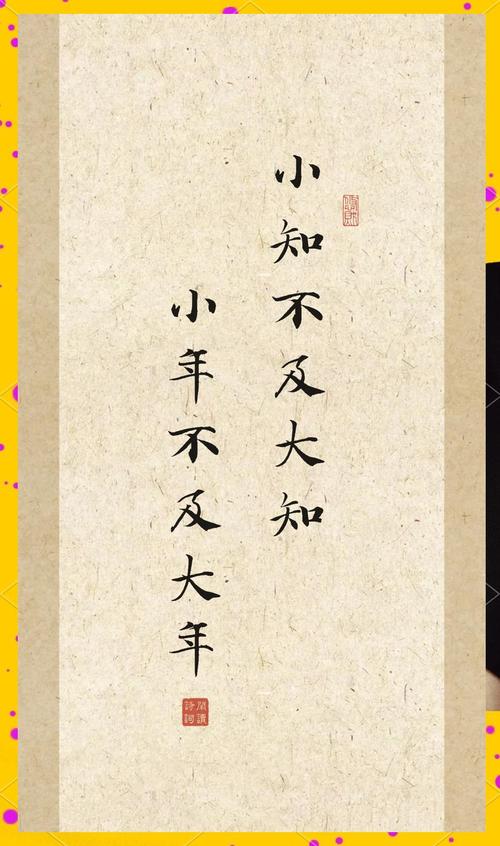 小知不及大知
小年不及大年
閱讀
詩詞